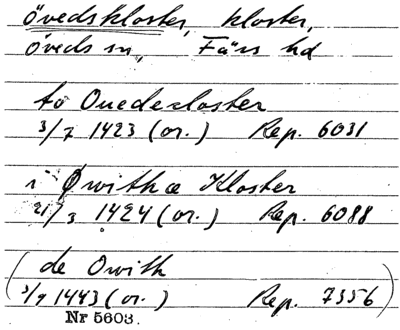 Övedskloster, kloster,
Öveds sn, Färs hd
to Ouedescloster
3/7 1423 (or.) Rep. 6031
i Øwithæ Kloster
21/3 1424 (or.) Rep. 6088
(de Owith
3/9 1443 (or.) Rep. 7356)
Nr 5603.